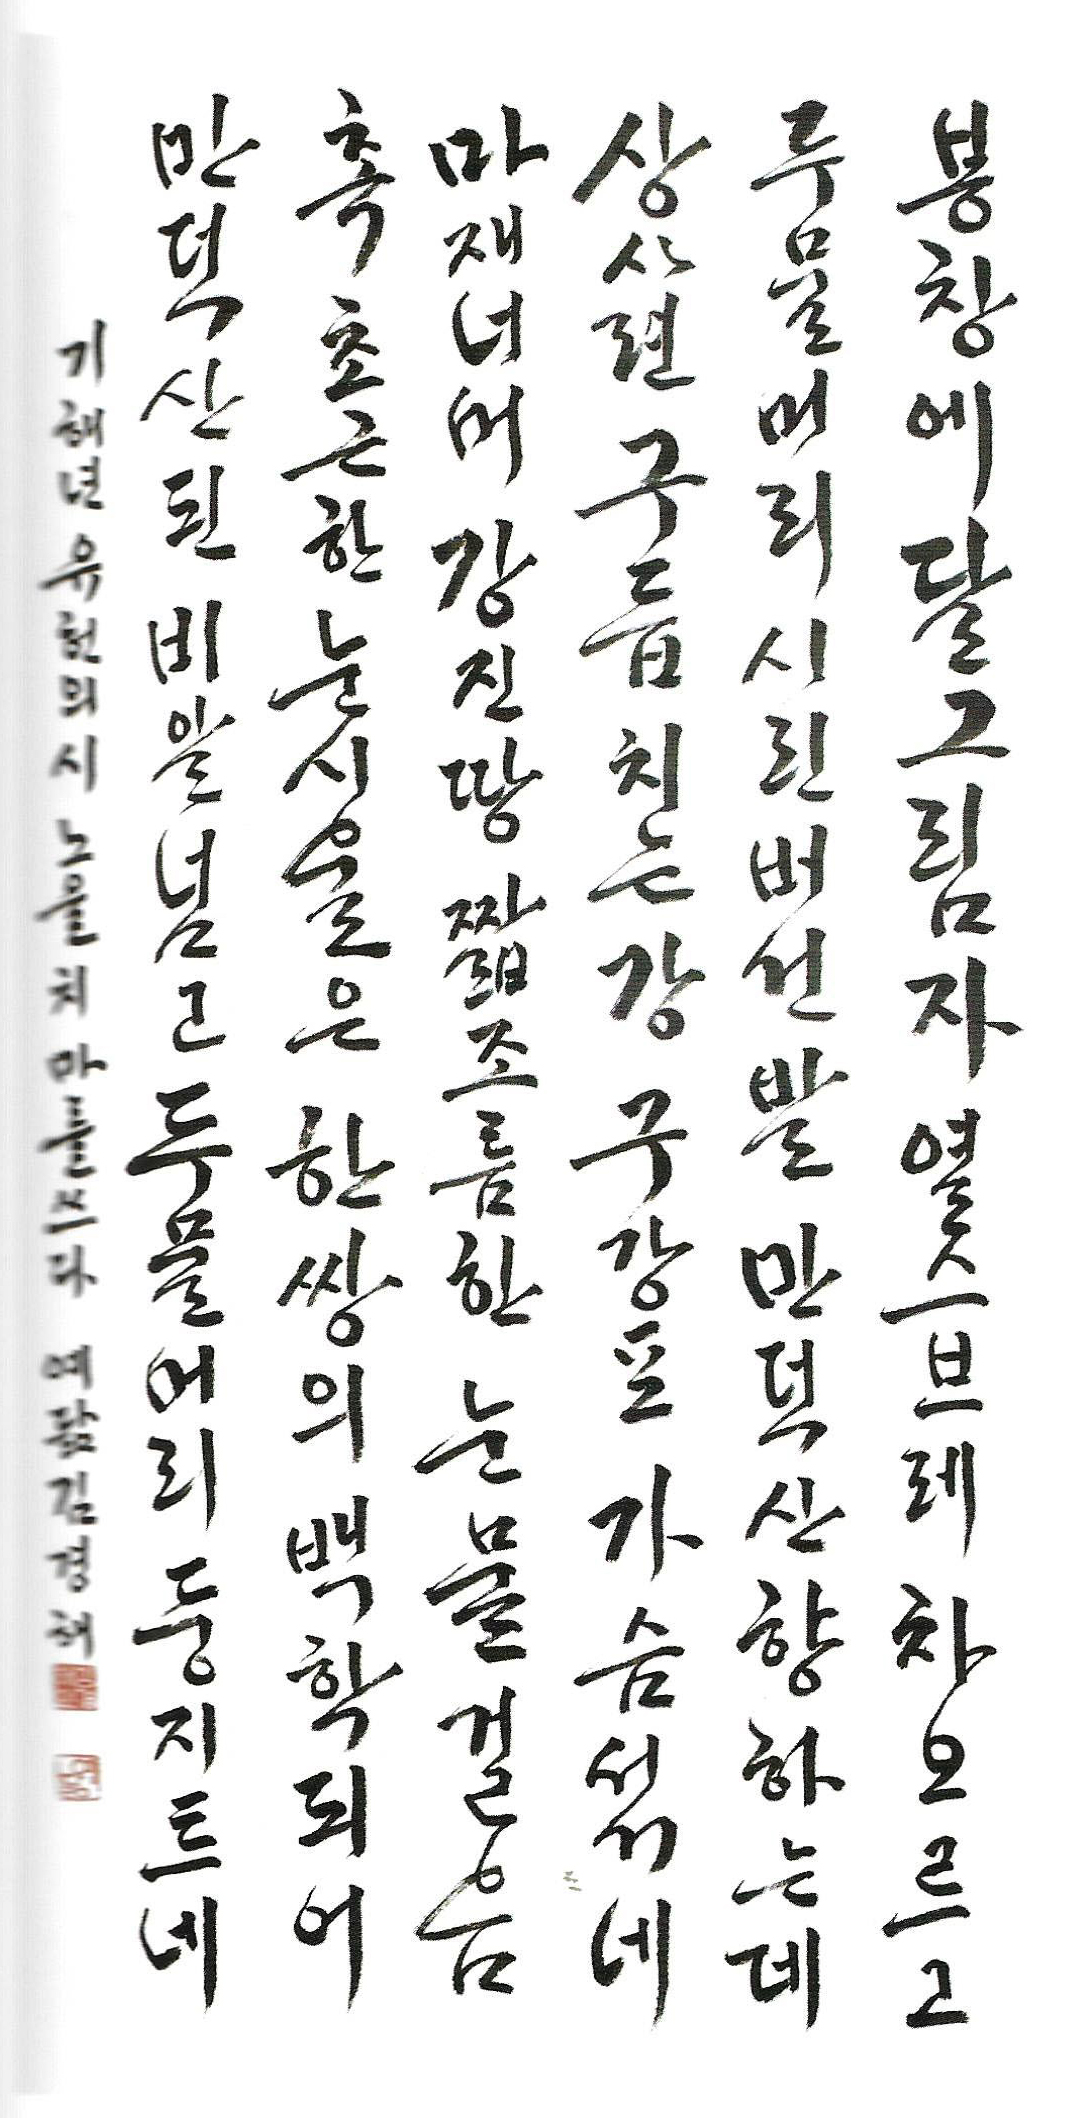 봉창에 달그림자 열스브레 차오르고
두물머리 시린 버선발 만덕산 향하는데
상사련 구름 치는 강 구강포 가슴
마재 너머 강진 땅 짭조름한 눈물 걸음
촉초근한 눈시울은 한 쌍의 백학 되어
만덕산 된비알 넘고 두물머리 둥지 트네
기해년 유헌의 시 노을치마를 쓰다 예닮 김경해